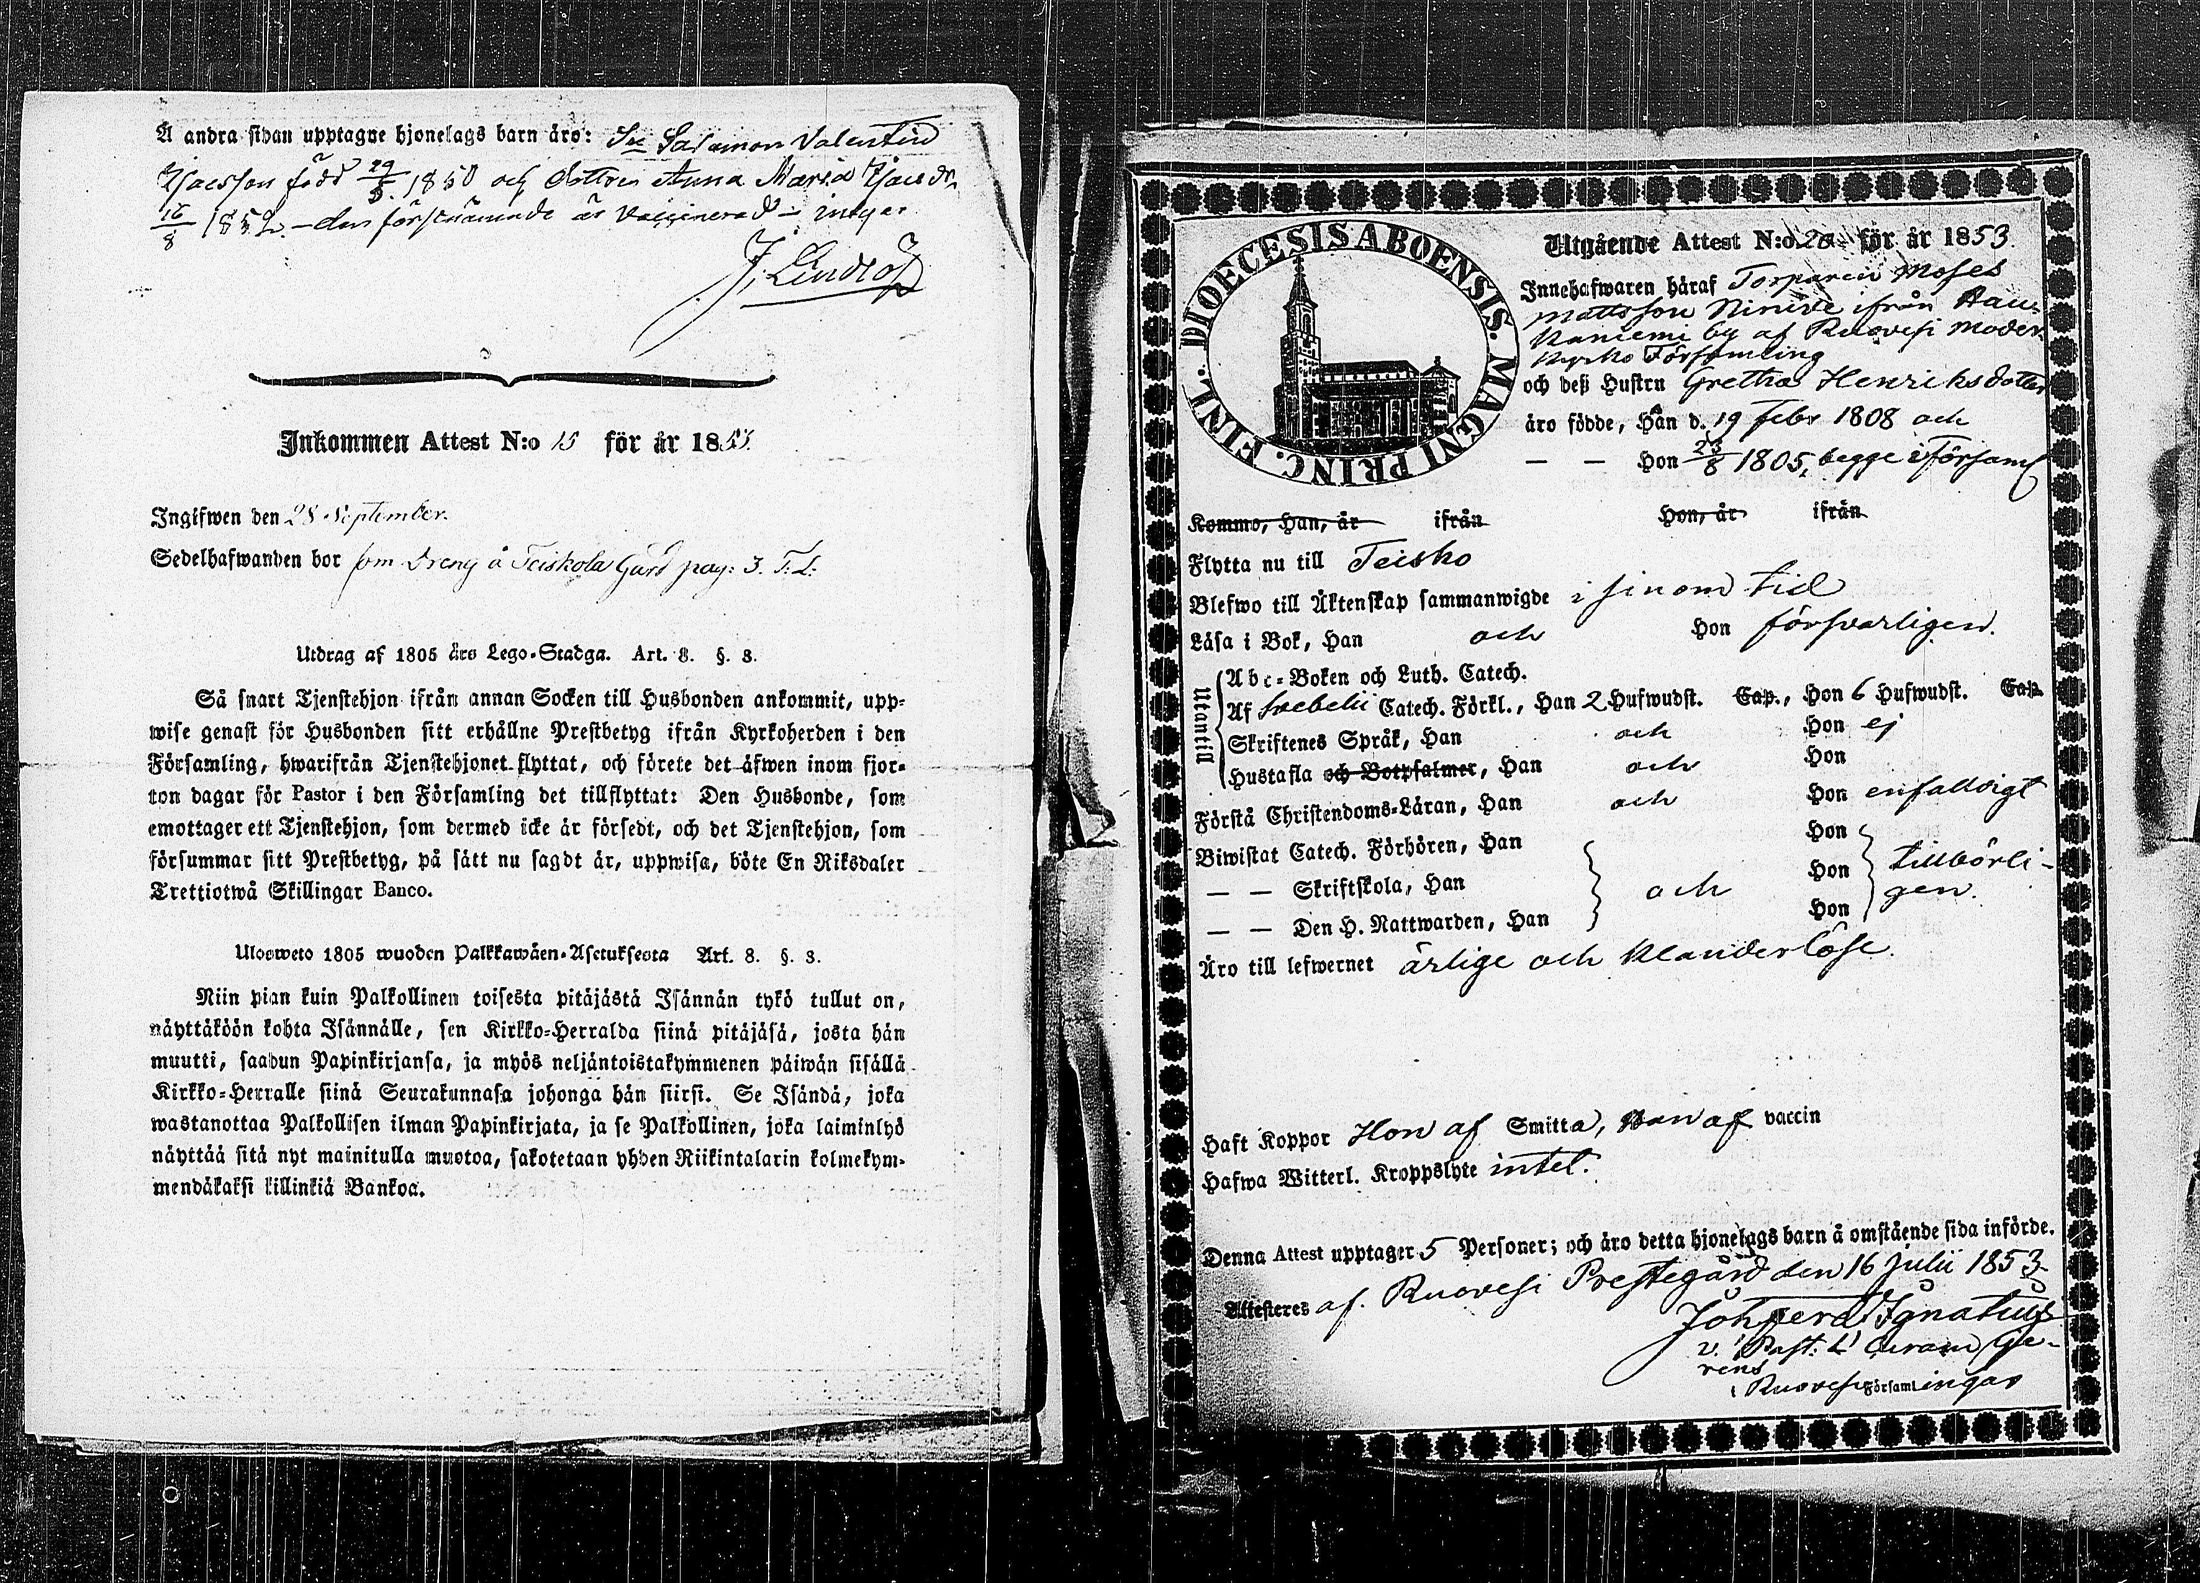 Å andra sidan upptagne hjonelags barn äro: Sn Salamon Valentin
Isacsson född 29/5 1850 och dottren Anna Maria Isacsdr
16/8 1852 – den förstnämnde är vaccinerad –
J. Lindlöf
Inkommen Attest N:o 15 för år 1853.
Ingifwen den 28 September.
Sedelhafwanden bor som Dreng å Teiskola Gård pag: 3. T. L:
Utdrag af 1805 års Lego-Stadga. Art. 8. §. 3.
Så snart Tjenstehjon ifrån annan Socken till Husbonden ankommit, upp-
wise genast för Husbonden sitt erhållne Prestbetyg ifrån Kyrkoherden i den
Församling, hwarifrån Tjenstehjonet flyttat, och förete det äfwen inom fjor-
ton dagar för Pastor i den Församling det tillflyttat: Den Husbonde, som
emottager ett Tjenstehjon, som dermed icke är försedt, och det Tjenstehjon, som
försummar sitt Prestbetyg, på sätt nu sagdt är, uppwisa, böte En Riksdaler
Trettiotwå Skillingar Banco.
Ulosweto 1805 wuoden Palkkawäen-Asetuksesta Art. 8. §. 3.
Niin pian kuin Palkollinen toisesta pitäjästä Isännän tykö tullut on,
näyttäköön kohta Isännälle, sen Kirkko-Herralda siinä pitäjäsä, josta hän
muutti, saadun Papinkirjansa, ja myös neljäntoistakymmenen päiwän sisällä
Kirkko-Herralle siinä Seurakunnasa johonga hän siirsi. Se Isändä, joka
wastanottaa Palkollisen ilman Papinkirjata, ja se Palkollinen, joka laiminlyö
näyttää sitä nyt mainitulla muotoa, sakotetaan yhden Riikintalarin kolmekym-
mendäkaksi killinkiä Bankoa.
DIOECESIS ABOENSIS. MAGNI PRINC. FINL.
Utgående Attest N:o 20 för år 1853.
Innehafwaren häraf Torparen Moses
Mattsson Ninive ifrån Hau-
kaniemi by af Ruovesi Moder-
kyrko Församling
och deß Hustru Gretha Henriksdotter
äro födde, Han d. 19 Febr 1808 och
— — Hon 23/8 1805, begge i Församl
Kommo, Han, år ifrån Hon, år ifrån
Flytta nu till Teisko
Blefwo till Äktenskap sammanwigde i sinom tid
Läsa i Bok, Han och Hon försvarligen.
Utantill
Abc-Boken och Luth. Catech.
Af Svebelii Catech. Förkl., Han 2 Hufwudst. Cap., Hon 6 Hufwudst. Cap.
Skriftenes Språk, Han och Hon ej
Hustafla och Botpsalmer, Han och Hon
Förstå Christendoms-Läran, Han och Hon enfaldigt
Biwistat Catech. Förhören, Han Hon
— — Skriftskola, Han och Hon tillbörli-
— — Den H. Nattwarden, Han Hon gen.
Äro till lefwernet ärlige och klanderlöse.
Haft Koppor Hon af Smitta, Han af vaccin
Hafwa Witterl. Kroppslyte intet.
Denna Attest upptager 5 Personer; och äro detta hjonelags barn å omstående sida införde.
Attesteres af. Ruovesi Prestegård den 16 Julii 1853
Joh Ferd Ignatius
v. Past: & Curam Ge-
rens
i Ruovesi Församlingar